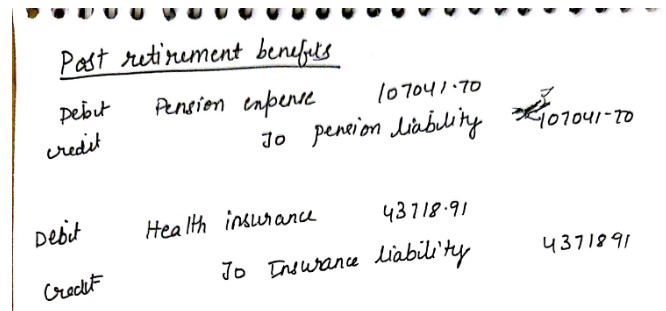 Post retirement benefits
Debit Pension expense 107041.70
credit To pension liability 107041-70
Debit Health insurance 43718.91
Credit To Insurance liability 4371891